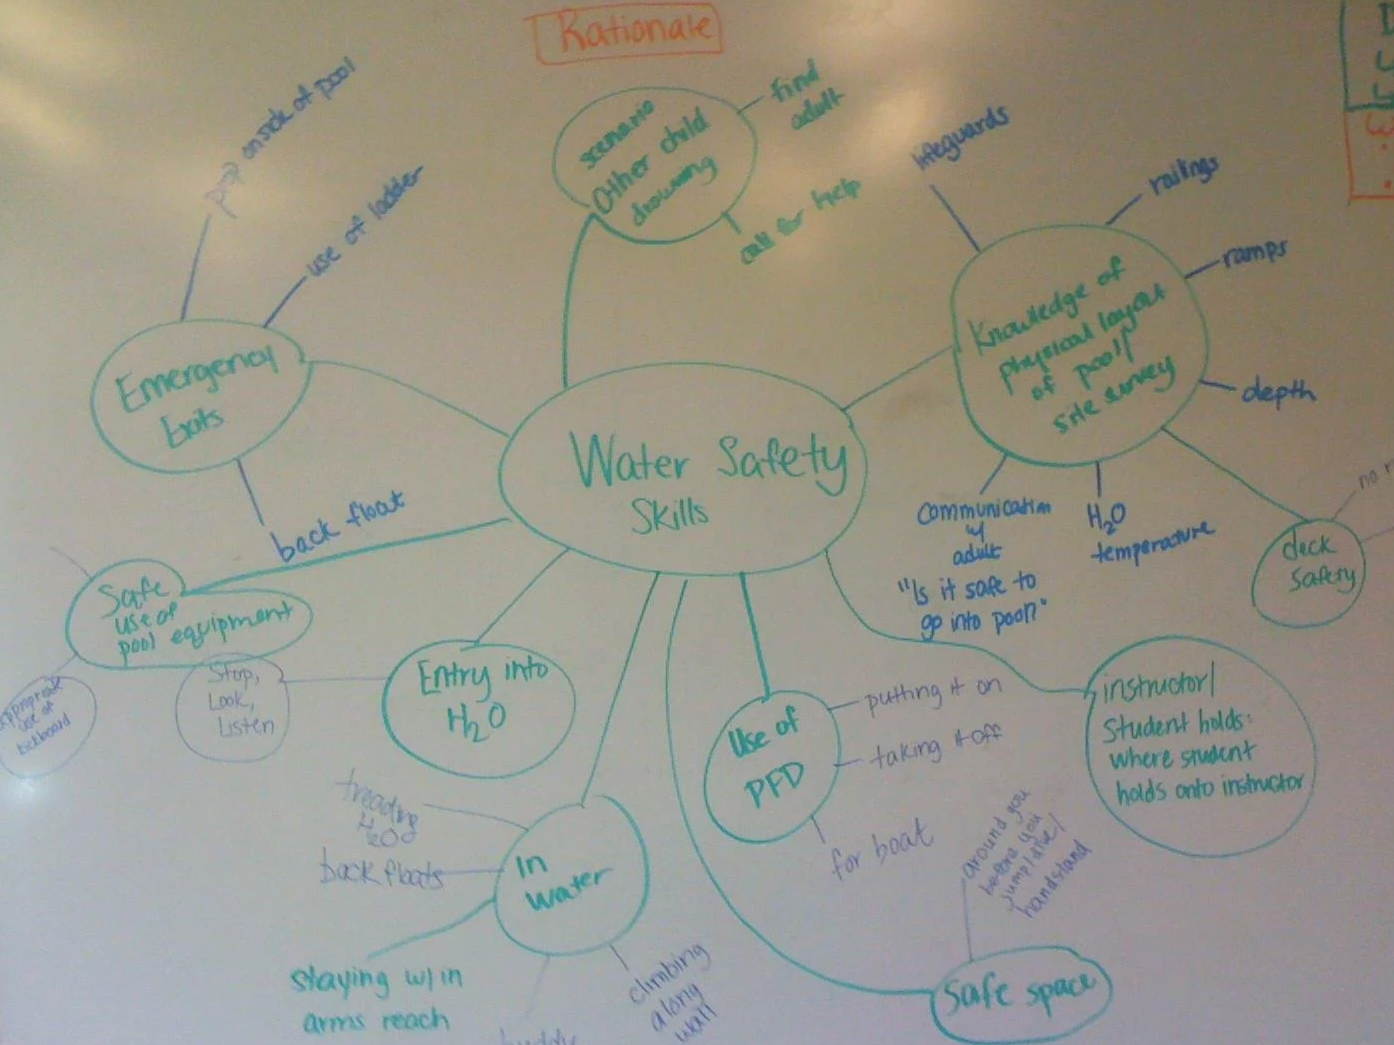 Rationale
scenario
Other child
drowning
find
adult
call for help
on side of pool
use of ladder
Emergency
Exits
back float
lifeguards
railings
ramps
depth
Knowledge of
physical layout
of pool/
site survey
communication
w/
adult
"Is it safe to
go into pool?"
H2O
temperature
deck
safety
no
Water Safety
Skills
Safe
use of
pool equipment
appropriate
use of
kickboard
Stop,
Look,
Listen
Entry into
H2O
Use of
PFD
putting it on
taking it off
for boat
instructor/
Student holds:
where student
holds onto instructor
In
water
treading
H2O
back floats
staying w/in
arms reach
buddy
climbing
along
wall
Safe space
around you
before you
jump/dive/
handstand